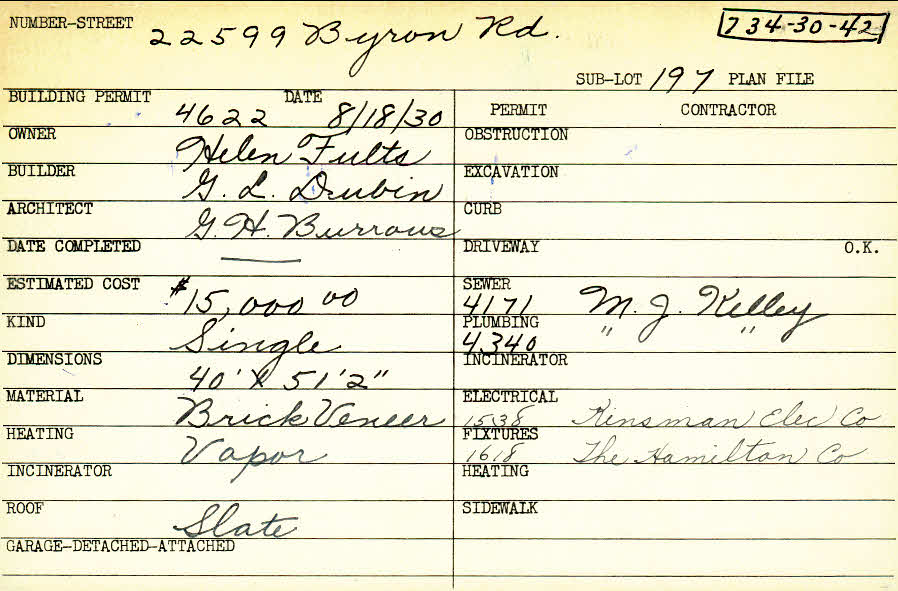 NUMBER-STREET 22599 Byron Rd. 734-30-42
SUB-LOT 197 PLAN FILE
BUILDING PERMIT 4622 DATE 8/18/30
PERMIT CONTRACTOR
OWNER Helen Fults
OBSTRUCTION
BUILDER G. L. Drubin
EXCAVATION
ARCHITECT G. H. Burrows
CURB
DATE COMPLETED —
DRIVEWAY O.K.
ESTIMATED COST $15,000 00
SEWER 4171 M. J. Kelley
KIND Single
PLUMBING 4340 " "
DIMENSIONS 40' X 51'2"
INCINERATOR
MATERIAL Brick Veneer
ELECTRICAL 1538 Kinsman Elec Co
HEATING Vapor
FIXTURES 1618 The Hamilton Co
INCINERATOR
HEATING
ROOF Slate
SIDEWALK
GARAGE-DETACHED-ATTACHED